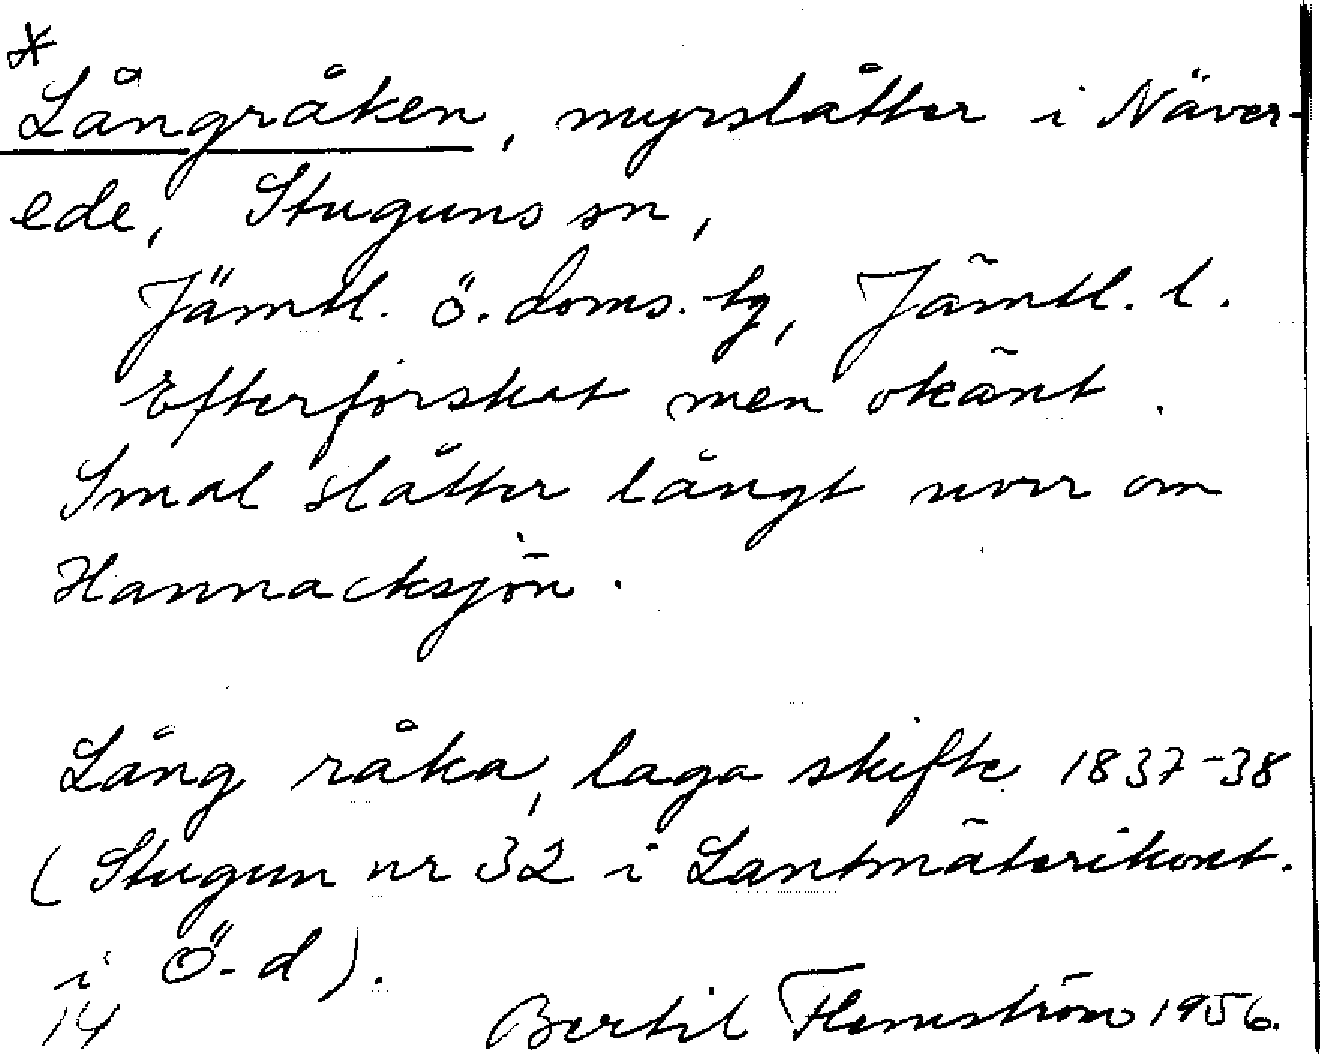 *
Långråken, myrslåtter i Näver-
ede, Stuguns sn,
Jämtl. ö. doms. tg, Jämtl. l.
Efterforskat men okänt.
Smal slåtter långt uver om
Hannacksjön.
Lång råka, laga skifte 1837-38
(Stugun nr 32 i Lantmäterikont.
i Ö-d).
14 Bertil Flemström 1956.